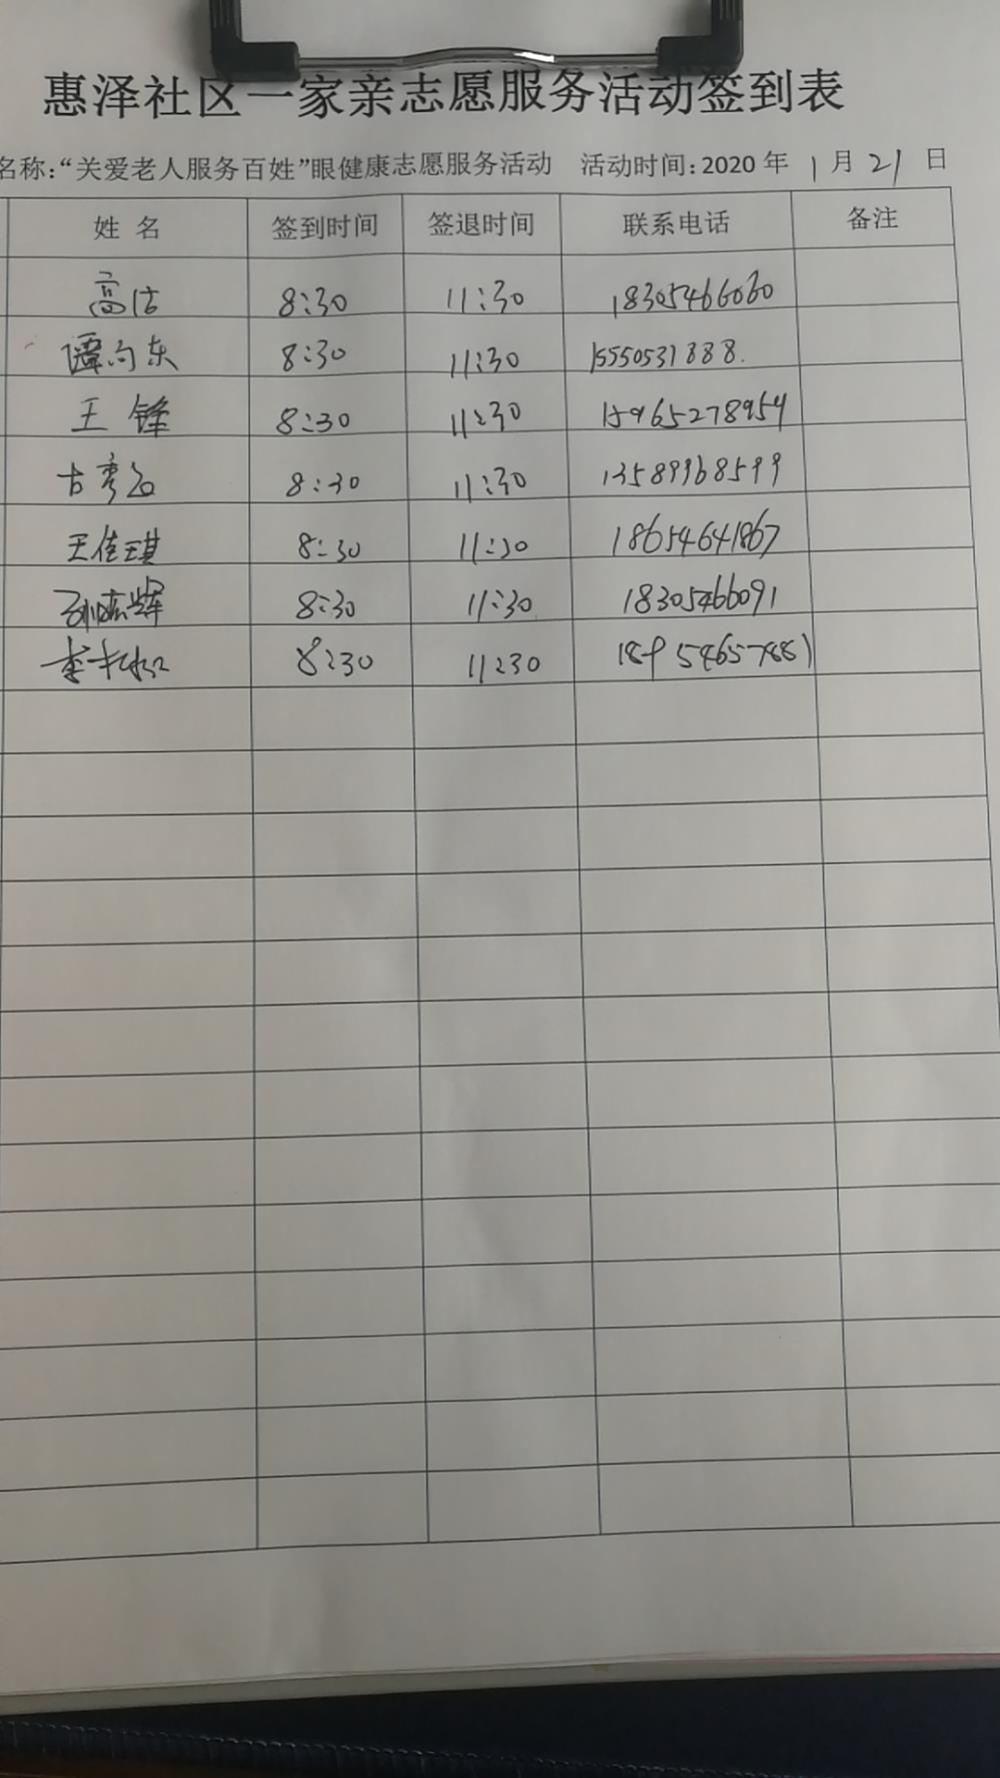 惠泽社区一家亲志愿服务活动签到表
名称:“关爱老人服务百姓”眼健康志愿服务活动 活动时间:2020 年 1 月 21 日
姓 名 签到时间 签退时间 联系电话 备注
高洁 8:30 11:30 18305466060
谭向东 8:30 11:30 15550531888.
王 锋 8:30 11:30 15965278954
古 8:30 11:30 13589968599
王佳琪 8:30 11:30 18654641867
孙志辉 8:30 11:30 18305466091
李 8:30 11:30